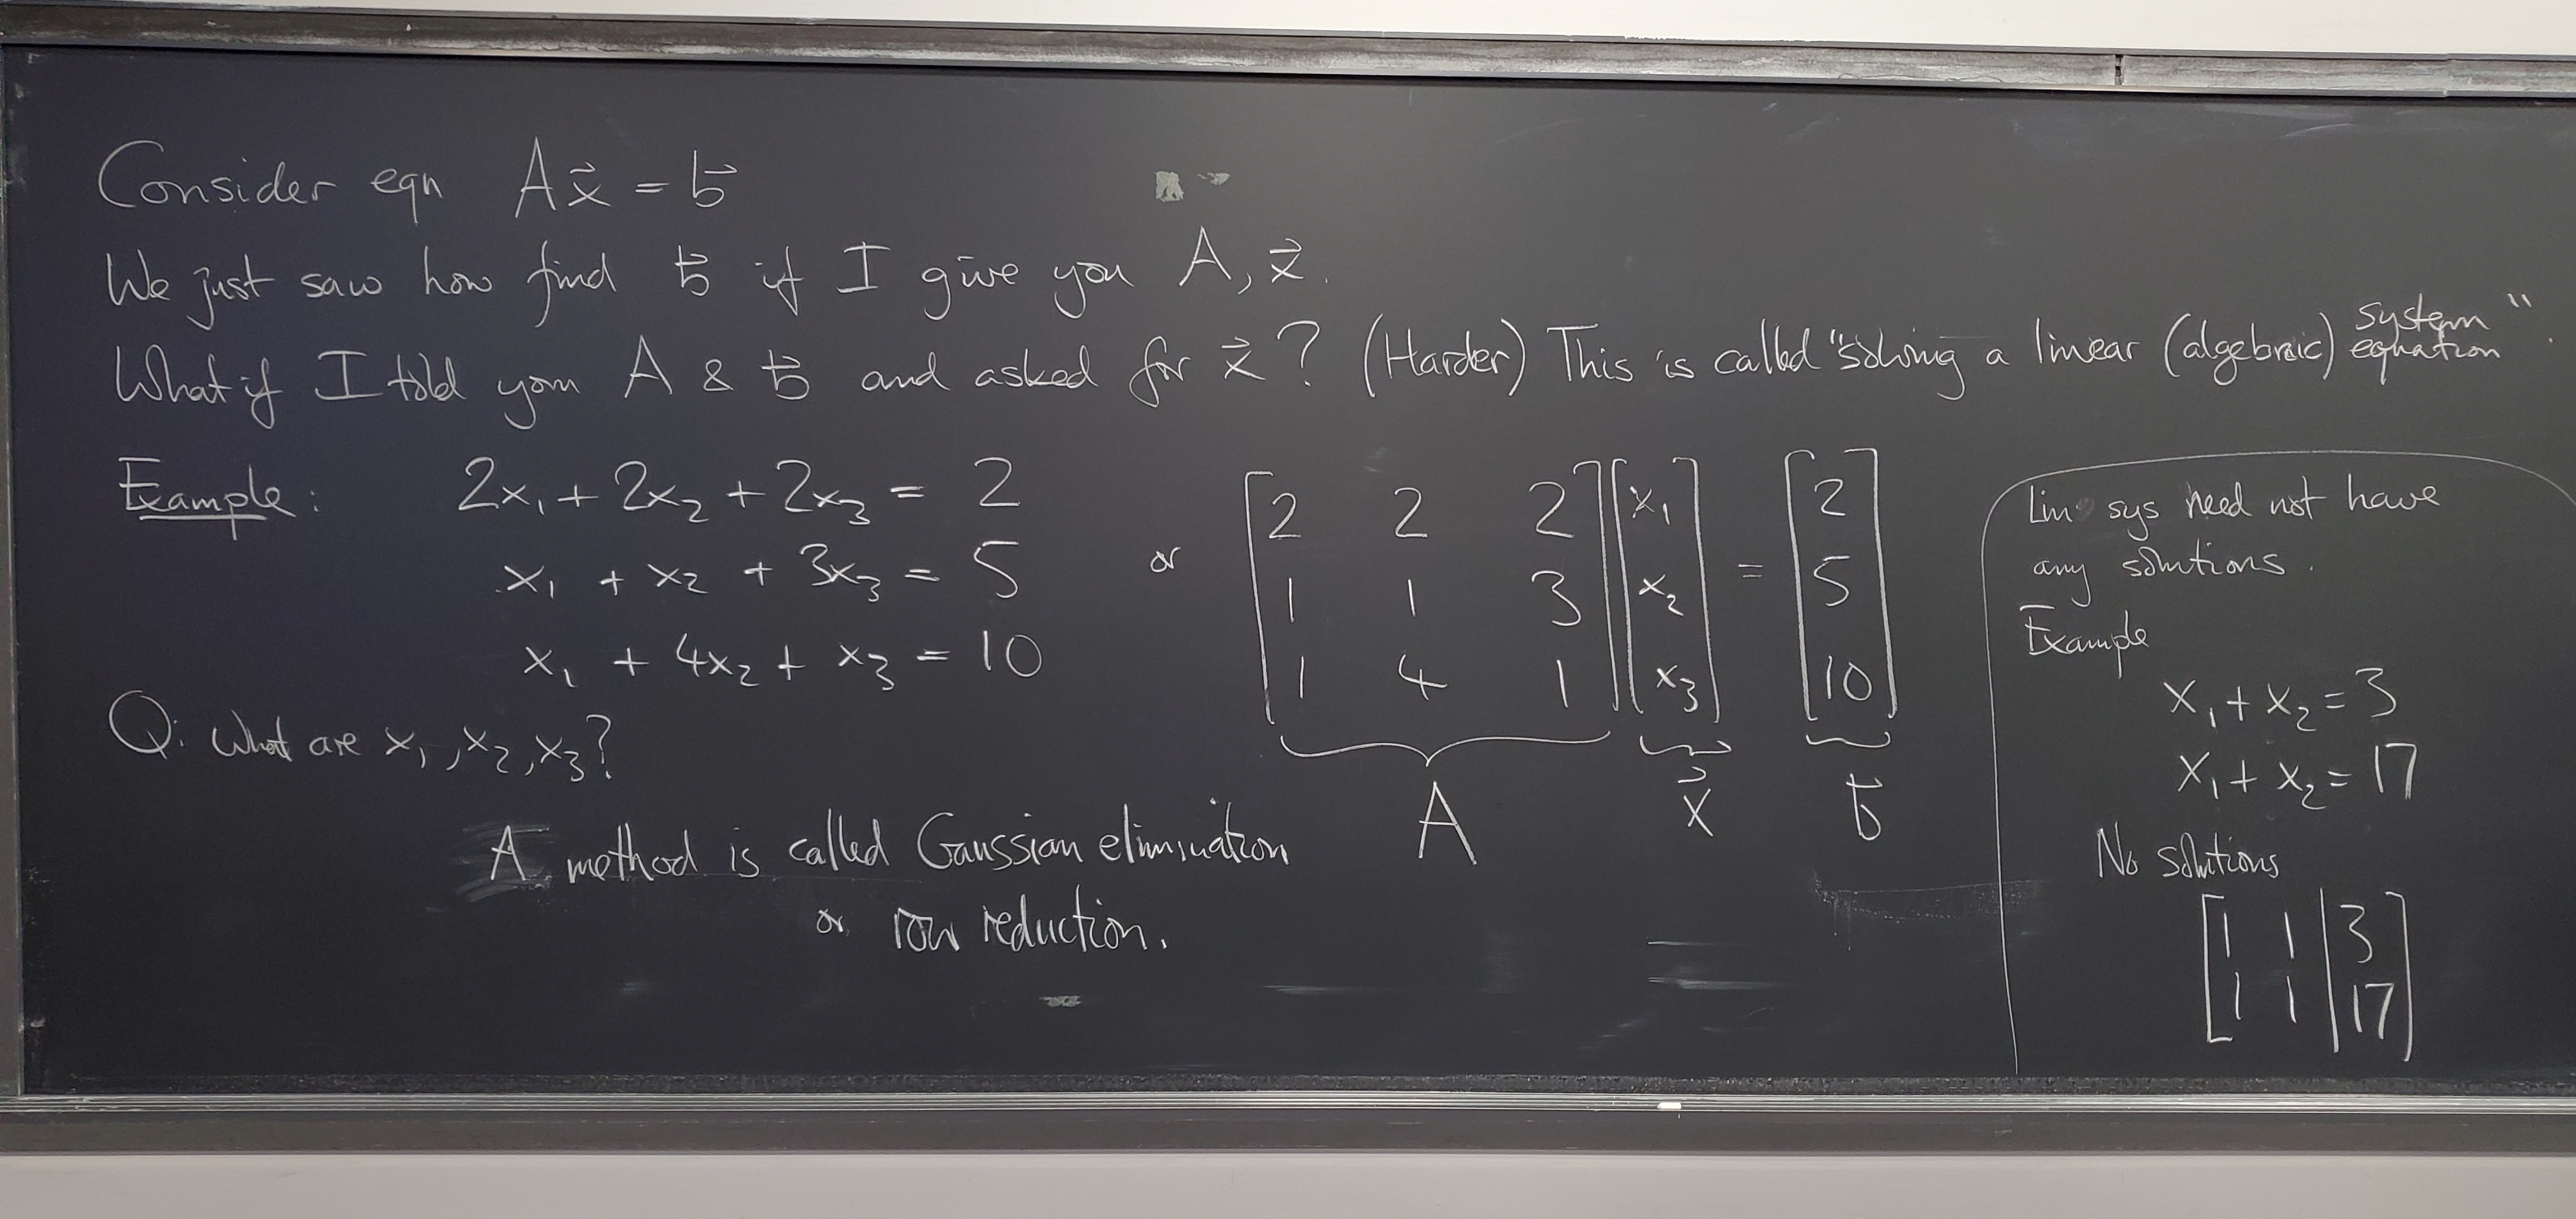 Consider eqn A x⃗ = b⃗
We just saw how find b⃗ if I give you A, x⃗.
What if I told you A & b⃗ and asked for x⃗? (Harder) This is called "solving a linear (algebraic) system equation".
Example: 2x₁ + 2x₂ + 2x₃ = 2
x₁ + x₂ + 3x₃ = 5
x₁ + 4x₂ + x₃ = 10
or
[2 2 2] [x₁] = [2]
[1 1 3] [x₂] = [5]
[1 4 1] [x₃] = [10]
A x⃗ b⃗
Q: What are x₁, x₂, x₃?
A method is called Gaussian elimination
or row reduction.
Lin sys need not have
any solutions.
Example
x₁ + x₂ = 3
x₁ + x₂ = 17
No solutions
[1 1 | 3]
[1 1 | 17]